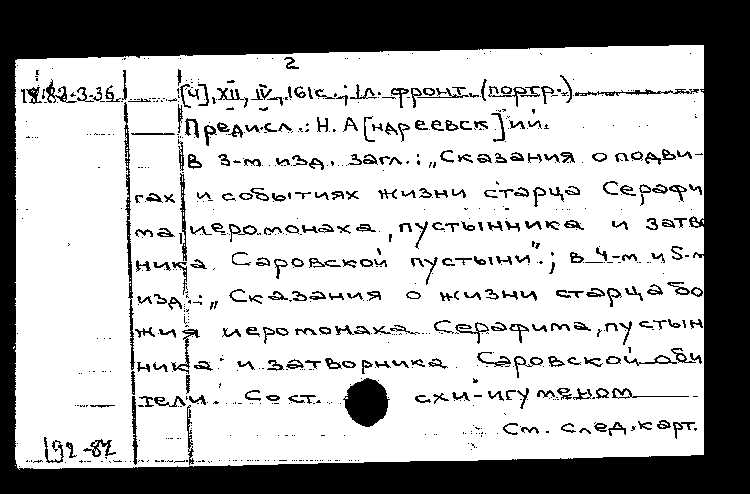 2
18.82-3-36 [4], XII, IV, 161 с.; 1 л. фронт. (портр.)
Предисл.: Н. А[ндреевск]ий.
В 3-м изд. загл.: „Сказания о подви-
гах и событиях жизни старца Серафи
ма, иеромонаха, пустынника и затво
ника Саровской пустыни".; в 4-м и 5-м
изд.: „Сказания о жизни старца бо
жия иеромонаха Серафима, пустын
ника и затворника Саровской оби
тели. Сост. схи-игуменом
См. след. карт.
192-82